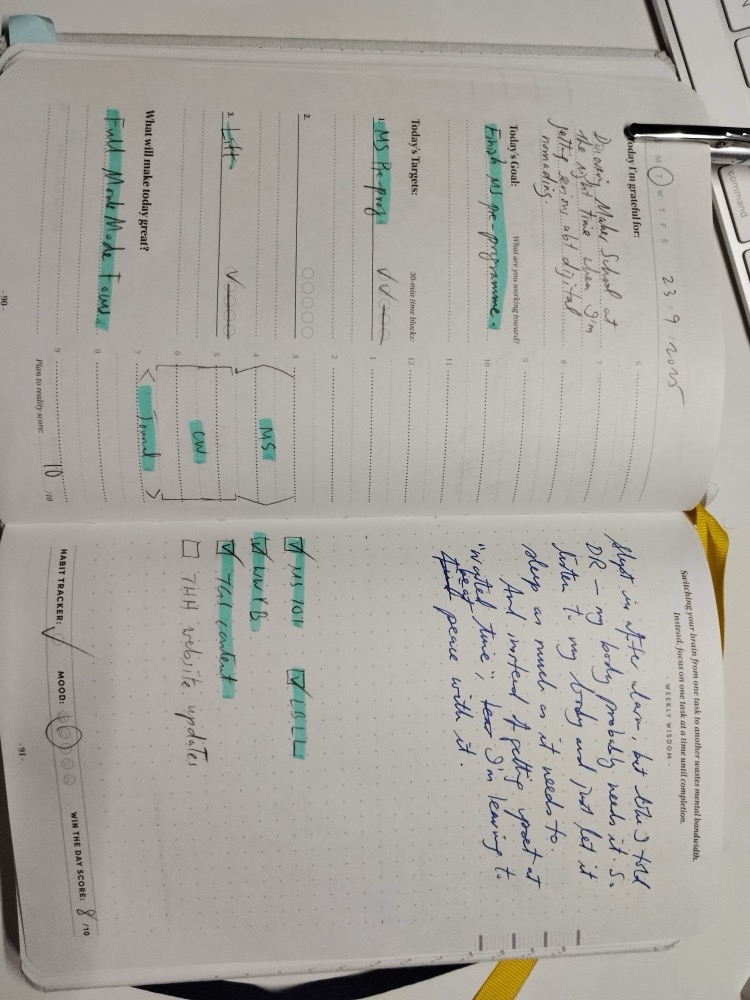 M T W T F S 23.9.2025
Today I'm grateful for:
Maker School at
the right time when I'm
getting serious abt digital
nomading.
Today's Goal: What are you working toward?
Finish MS pre-programme.
Today's Targets: 30-min time blocks:
1. MS Pre-prog
2.
3.
What will make today great?
Full Monk Mode Focus.
-90-
6
7
8
9
10
11
12
1
2
3
4 MS
5
6 CW
7 Journal
8
9
Plan to reality score: 10 /10
Switching your brain from one task to another wastes mental bandwidth.
Instead, focus on one task at a time until completion.
- WEEKLY WISDOM -
Slept in after alarm, but like I told
DR – my body probably needs it. So
listen to my body and just let it
sleep as much as it needs to.
And instead of getting upset at
"wasted time", I'm learning to
peace with it.
MS 101
LBLL
WWYB
content
THH website updates
HABIT TRACKER: MOOD: WIN THE DAY SCORE: 8/10
-91-
command